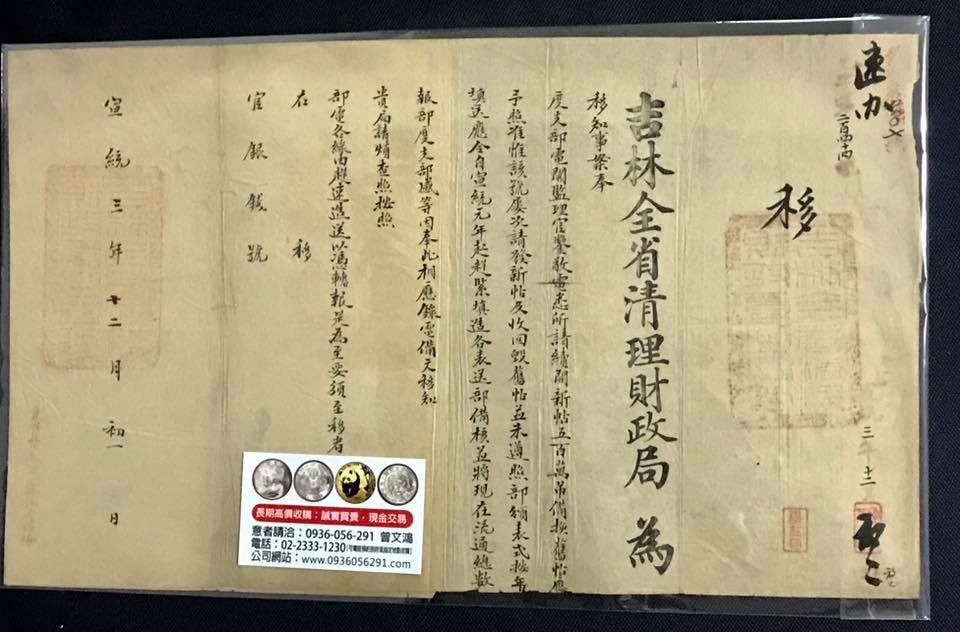 速加
移
吉林全省清理財政局 為
移知事案奉
度支部電開監理官鑒敬電悉所請續開新帖五百萬吊備換舊帖應
予照准惟該號屢次請發新帖及收回毀舊帖並未遵照部頒表式按年
填送應令自宣統元年起趕緊填造各表送部備核並將現在流通總數
報部度支部感等因奉此相應錄電備文移知
貴局請煩查照按照
部電各緣由趕速造送以憑轉報是為至要須至移者
右 移
官銀錢號
宣統三年十二月初一日
長期高價收購：誠實買賣，現金交易
意者請洽：0936-056-291 曾文鴻
電話：02-2333-1230
公司網站：www.0936056291.com